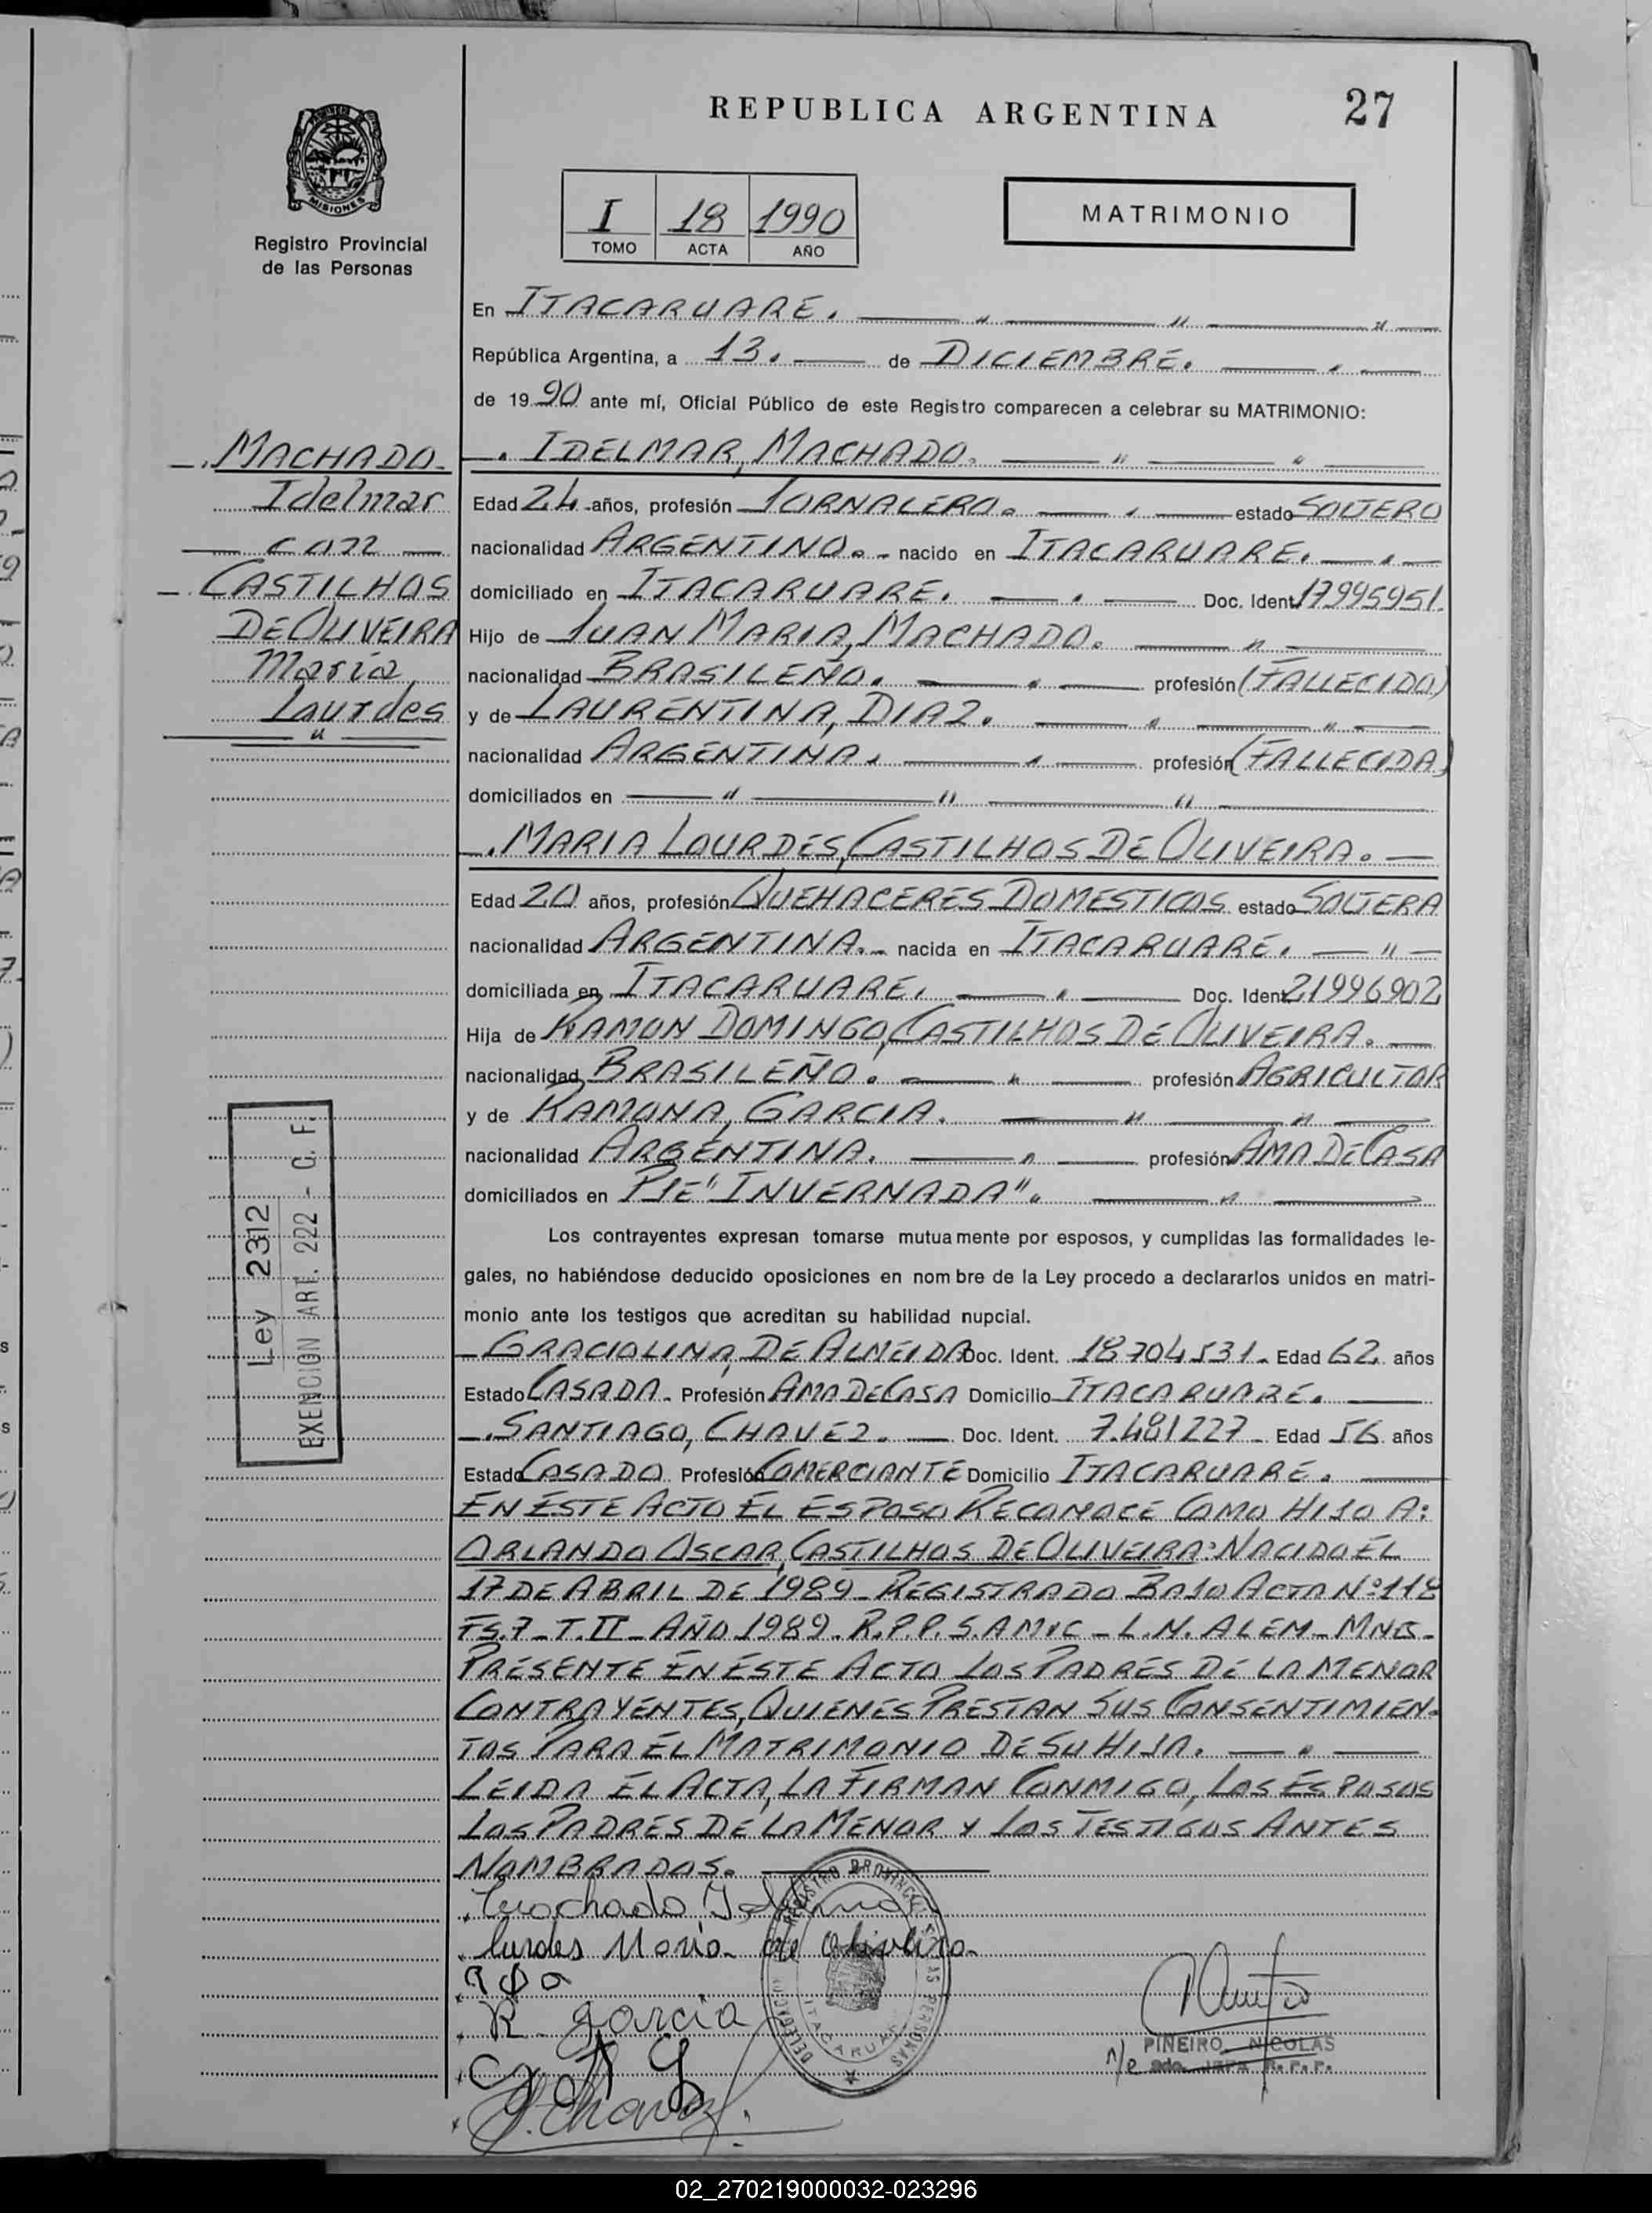 REPUBLICA ARGENTINA
27
PROVINCIA DE MISIONES
Registro Provincial
de las Personas
I 18 1990
TOMO ACTA AÑO
MATRIMONIO
En ITACARUARE.
República Argentina, a 13. de DICIEMBRE.
de 1990 ante mí, Oficial Público de este Registro comparecen a celebrar su MATRIMONIO:
MACHADO
Idelmar
con
CASTILHOS
DE OLIVEIRA
María
Lourdes
IDELMAR, MACHADO.
Edad 24 años, profesión JORNALERO. estado SOLTERO
nacionalidad ARGENTINO. nacido en ITACARUARE.
domiciliado en ITACARUARE. Doc. Ident. 17995951.
Hijo de JUAN MARIA, MACHADO.
nacionalidad BRASILEÑO. profesión (FALLECIDO)
y de LAURENTINA, DIAZ.
nacionalidad ARGENTINA. profesión (FALLECIDA)
domiciliados en
MARIA LOURDES, CASTILHOS DE OLIVEIRA.
Edad 20 años, profesión QUEHACERES DOMESTICOS estado SOLTERA
nacionalidad ARGENTINA. nacida en ITACARUARE.
domiciliada en ITACARUARE. Doc. Ident. 21996902
Hija de RAMON DOMINGO, CASTILHOS DE OLIVEIRA.
nacionalidad BRASILEÑO. profesión AGRICULTOR
y de RAMONA, GARCIA.
nacionalidad ARGENTINA. profesión AMA DE CASA
domiciliados en PJE "INVERNADA".
Ley 2312
EXENCION ART. 222 - C. F.
Los contrayentes expresan tomarse mutuamente por esposos, y cumplidas las formalidades le-
gales, no habiéndose deducido oposiciones en nombre de la Ley procedo a declararlos unidos en matri-
monio ante los testigos que acreditan su habilidad nupcial.
GRACIOLINA, DE ALMEIDA Doc. Ident. 18704531. Edad 62 años
Estado CASADA. Profesión AMA DE CASA Domicilio ITACARUARE.
SANTIAGO, CHAVEZ. Doc. Ident. 7.481227 Edad 56 años
Estado CASADO Profesión COMERCIANTE Domicilio ITACARUARE.
EN ESTE ACTO EL ESPOSO RECONOCE COMO HIJO A:
ORLANDO OSCAR, CASTILHOS DE OLIVEIRA: NACIDO EL
17 DE ABRIL DE 1989 - REGISTRADO BAJO ACTA Nº 118
FS. 7 - T. II - AÑO 1989. R.P.P. S.AMIC - L.N. ALEM - MNES-
PRESENTE EN ESTE ACTO LOS PADRES DE LA MENOR
CONTRAYENTES, QUIENES PRESTAN SUS CONSENTIMIEN-
TOS PARA EL MATRIMONIO DE SU HIJA.
LEIDA EL ACTA, LA FIRMAN CONMIGO, LOS ESPOSOS
LOS PADRES DE LA MENOR Y LOS TESTIGOS ANTES
NOMBRADOS.
Machado Idelmar
Lurdes Maria de Oliveira
R. garcia
S. Chavez
REGISTRO PROVINCIAL DE LAS PERSONAS
DELEGACION
ITACARUARE
PIÑEIRO NICOLAS
JEFE R.P.P.
02_270219000032-023296